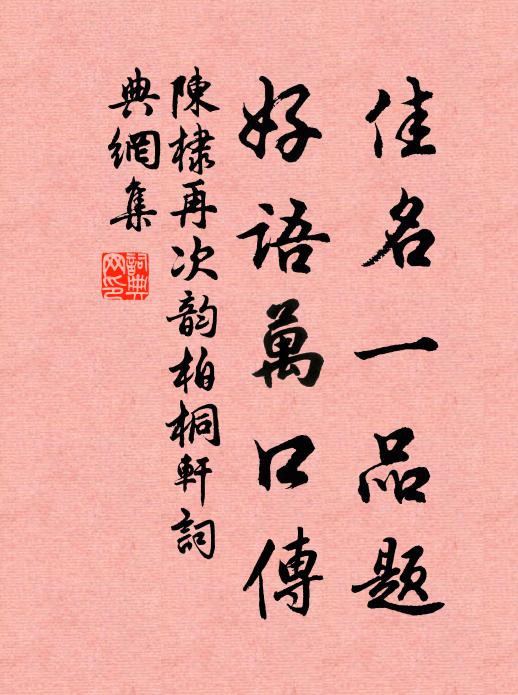 佳名一品題
好語萬口傳
陳棣再次韵柏桐軒詞
典網集
詞典網印